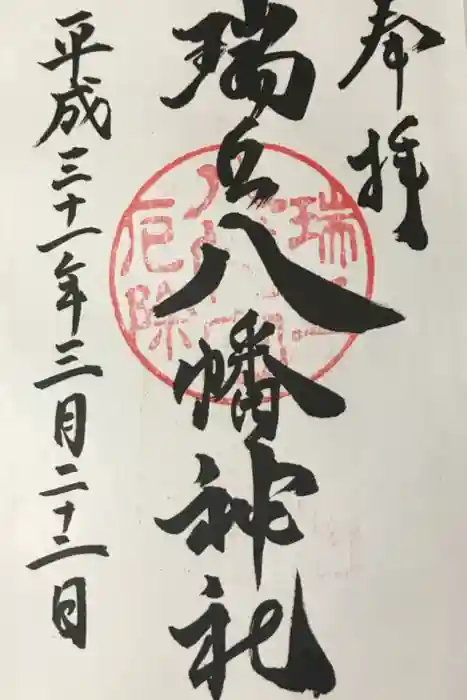 奉拝
瑞丘八幡神社
平成三十一年三月二十二日
瑞丘
厄除